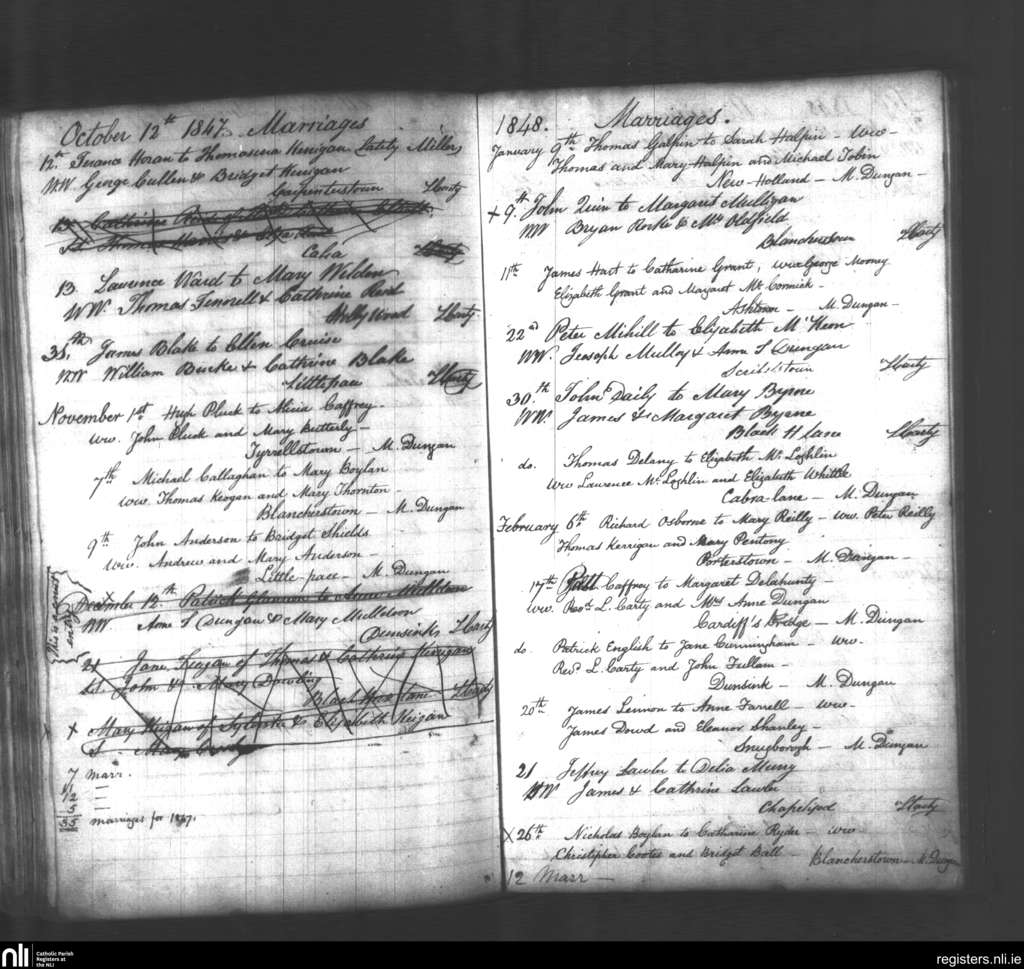 October 12th 1847. Marriages
12th Terance Horan to Thomasena Kenigan Lately Millers
WW George Cullen & Bridget Kenigan
Carpenterstown LCarty
13 Cathrine
St Thomas
Cabra LCarty
13 Lawrence Ward to Mary Welden
WW. Thomas Tennell & Cathrine Reid
Hollywood LCarty
James Blake to Ellen Cruise
WW William Burke & Cathrine Blake
Littlepace LCarty
November 1st Hugh Pluck to Alicia Caffrey.
ww. John Pluck and Mary Butterly –
Tyrrellstown – M. Dungan
7th Michael Callaghan to Mary Boylan
ww. Thomas Keogan and Mary Thornton –
Blancherstown – M. Dungan
9th John Anderson to Bridget Shields
ww. Andrew and Mary Anderson –
Little-pace – M. Dungan
December 12th Patrick to Anne
WW Anne S Dungan & Mary
Dunsink LCarty
21 Jane Keegan of Thomas & Cathrine
St. John & Mary Dowling
Black Horse Lane LCarty
x Mary Keigan of & Elizabeth Keigan
S Mary
This is a
entry
7 marr.
11 –
12 –
5 –
35 marriages for 1847.
1848. Marriages.
January 9th Thomas Galpin to Sarah Halpin – ww –
Thomas and Mary Halpin and Michael Tobin
New-Holland – M. Dungan –
+ 9th John Quin to Margaret Mulligan
WW Bryan Rorke & Mrs Oldfield
Blancherstown LCarty
11th James Hart to Catharine Grant, ww George Mooney
Elizabeth Grant and Margaret McCormick –
Ashtown – M. Dungan –
22nd Peter Mihill to Elizabeth M'Keon
WW. Jeosoph Mulloy & Anna S Dungan
LCarty
30th John Daily to Mary Byrne
WW. James & Margaret Byrne
Black H lane LCarty
do. Thomas Delany to Elizabeth McLoghlin
ww Laurence McLoghlin and Elizabeth Whittle
Cabra-lane – M. Dungan
February 6th Richard Osborne to Mary Reilly – ww. Peter Reilly
Thomas Kerrigan and Mary Pentony
Porterstown – M. Dungan –
17th Caffrey to Margaret Delahunty –
ww. Revd L. Carty and Mrs Anne Dungan
Cardiff's Bridge – M. Dungan
do. Patrick English to Jane Cunningham – ww.
Revd L. Carty and John Fullam –
Dunsink – M. Dungan
20th James Lennon to Anne Farrell – ww –
James Dowd and Eleanor Shanley –
Snugborogh – M. Dungan
21 Jeffrey Lawler to Delia Murry
WW James & Cathrine Lawler
Chapelizod LCarty
x 26th Nicholas Boylan to Catharine Ryder – ww
Christopher Cootes and Bridget Ball – Blancherstown – M. Dungan
12 Marr –
nli Catholic Parish
Registers at
the NLI
registers.nli.ie